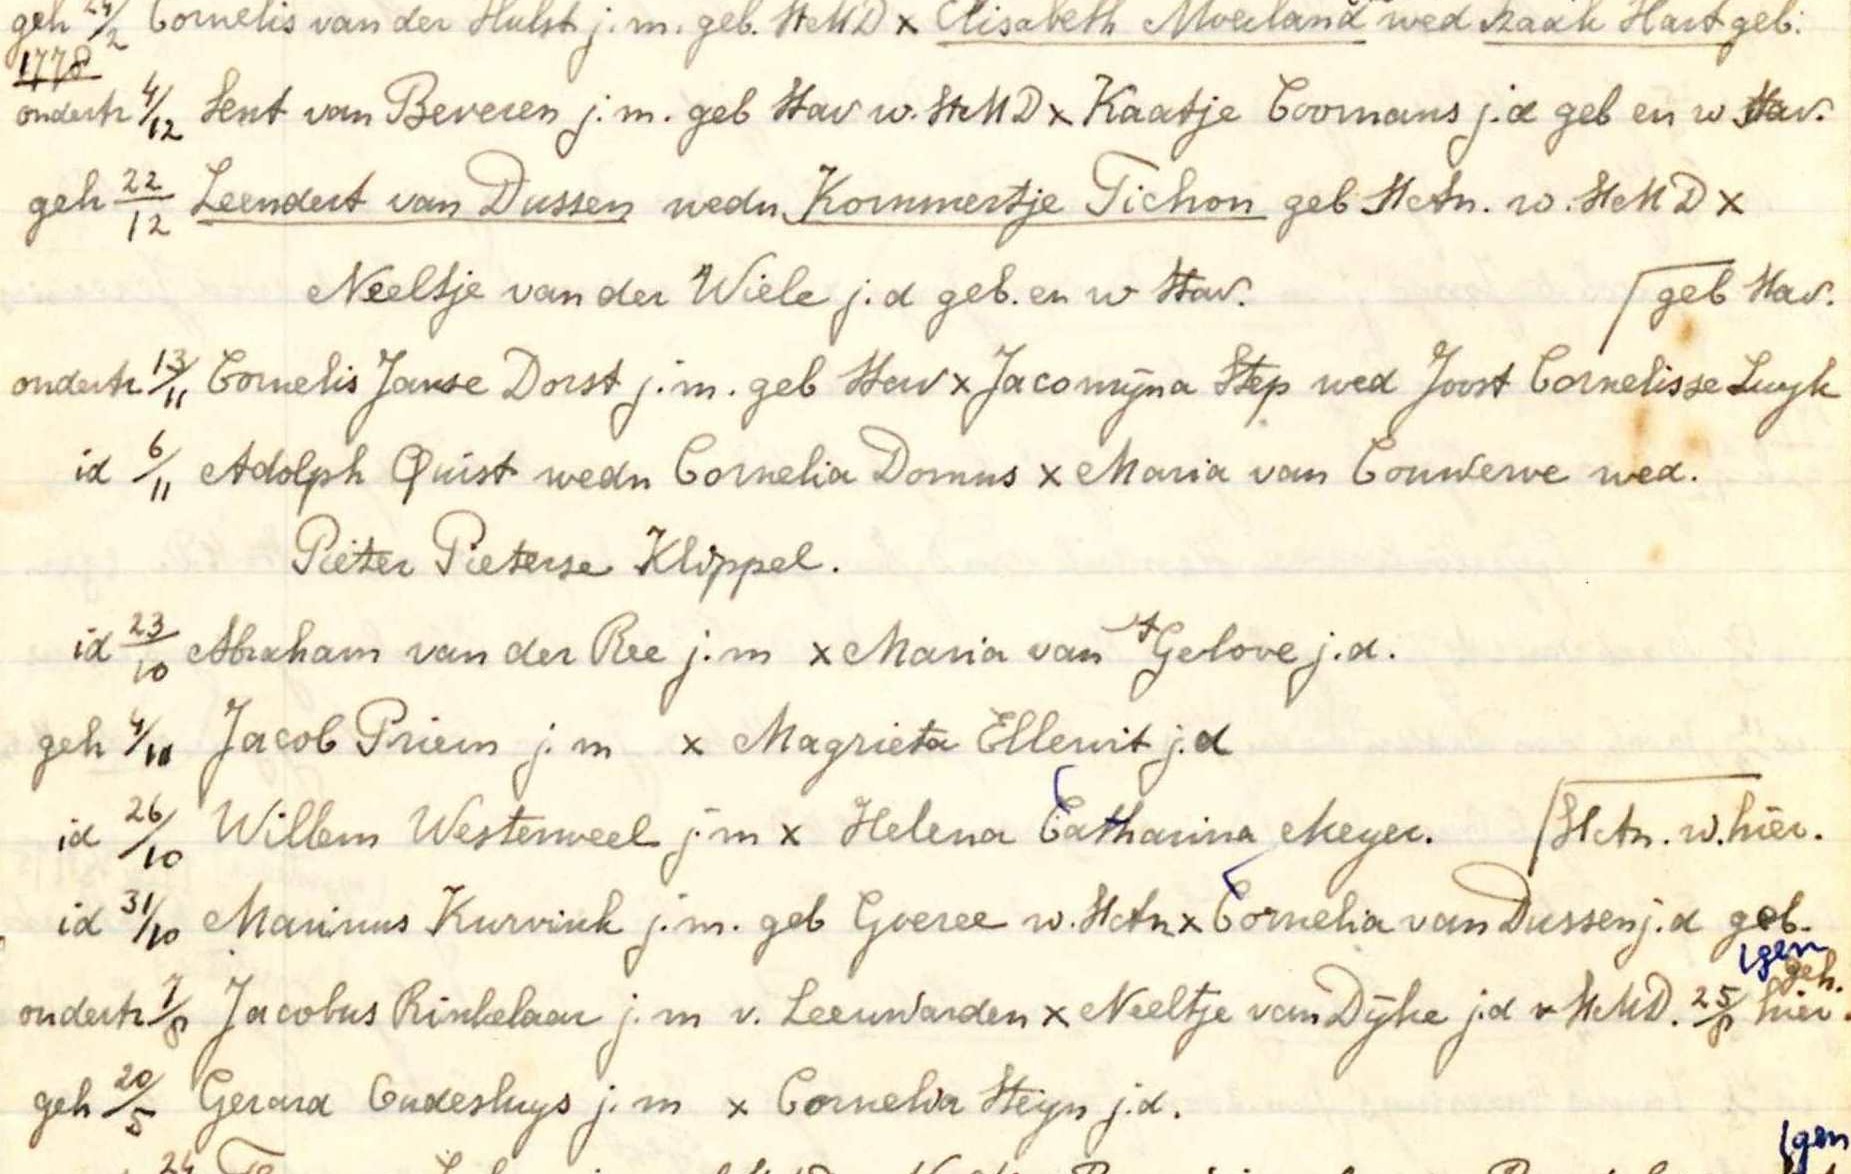 geh 24/2 Cornelis van der Hulst j.m. geb. StMD x Elisabeth Moerland wed Izaak Hart geb:
1778
ondertr 4/12 Sent van Beveren j.m. geb Stav w. StMD x Kaatje Coomans j.d geb en w Stav.
geh 22/12 Leendert van Dussen wedn Kommertje Tichon geb StAn. w. StMD x
Neeltje van der Wiele j.d geb. en w Stav.
geb Stav.
ondertr 13/11 Cornelis Janse Dorst j.m. geb Stav x Jacomijna Step wed Joost Cornelisse Luyk
id 6/11 Adolph Quist wedn Cornelia Domus x Maria van Couwerve wed.
Pieter Pieterse Klippel.
id 23/10 Abraham van der Ree j.m x Maria van 't Gelove j.d.
geh 4/10 Jacob Priem j.m x Magrieta Ellewit j.d
id 26/10 Willem Westerweel j.m x Helena Catharina Meyer.
StAn. w. hier.
id 31/10 Marinus Kurvink j.m. geb Goeree w. StAn x Cornelia van Dussen j.d geb.
gen
geh.
ondertr 7/8 Jacobus Rinkelaar j.m v. Leeuwarden x Neeltje van Dijke j.d v StMD. 25/8 hier.
geh 20/5 Gerard Oudesluys j.m x Cornelia Steyn j.d.
gen